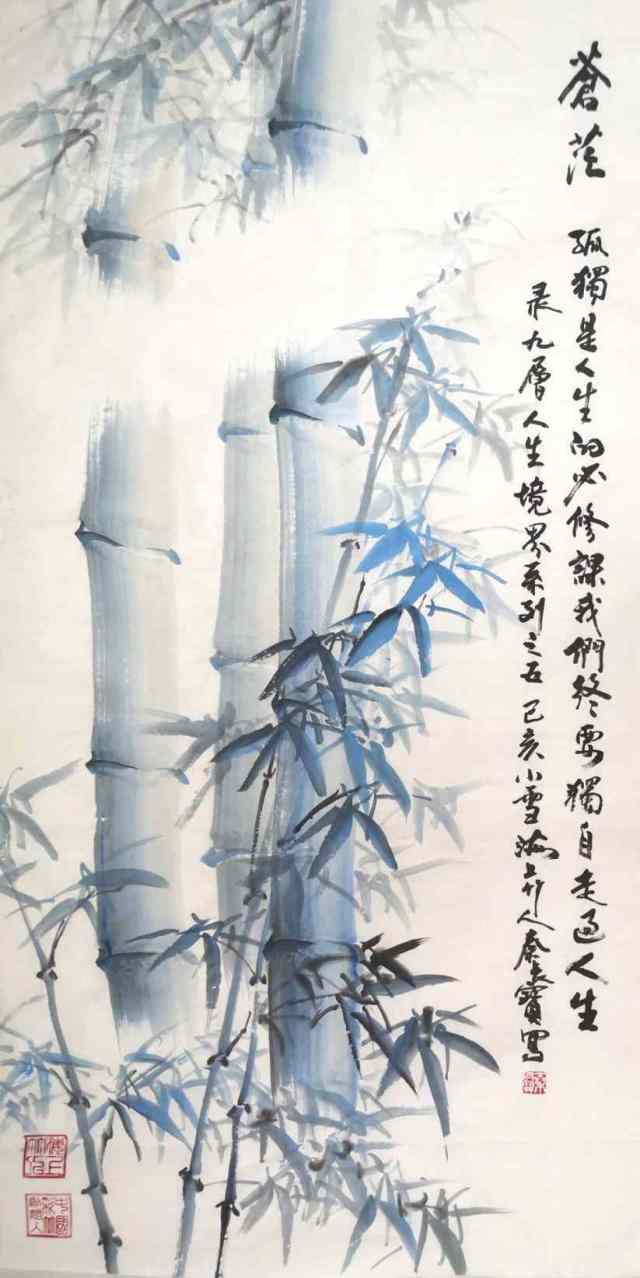 蒼茫
孤獨是人生的必修課我們終要獨自走過人生
录九層人生境界系列之五 己亥小雪海上竹人秦長寶寫